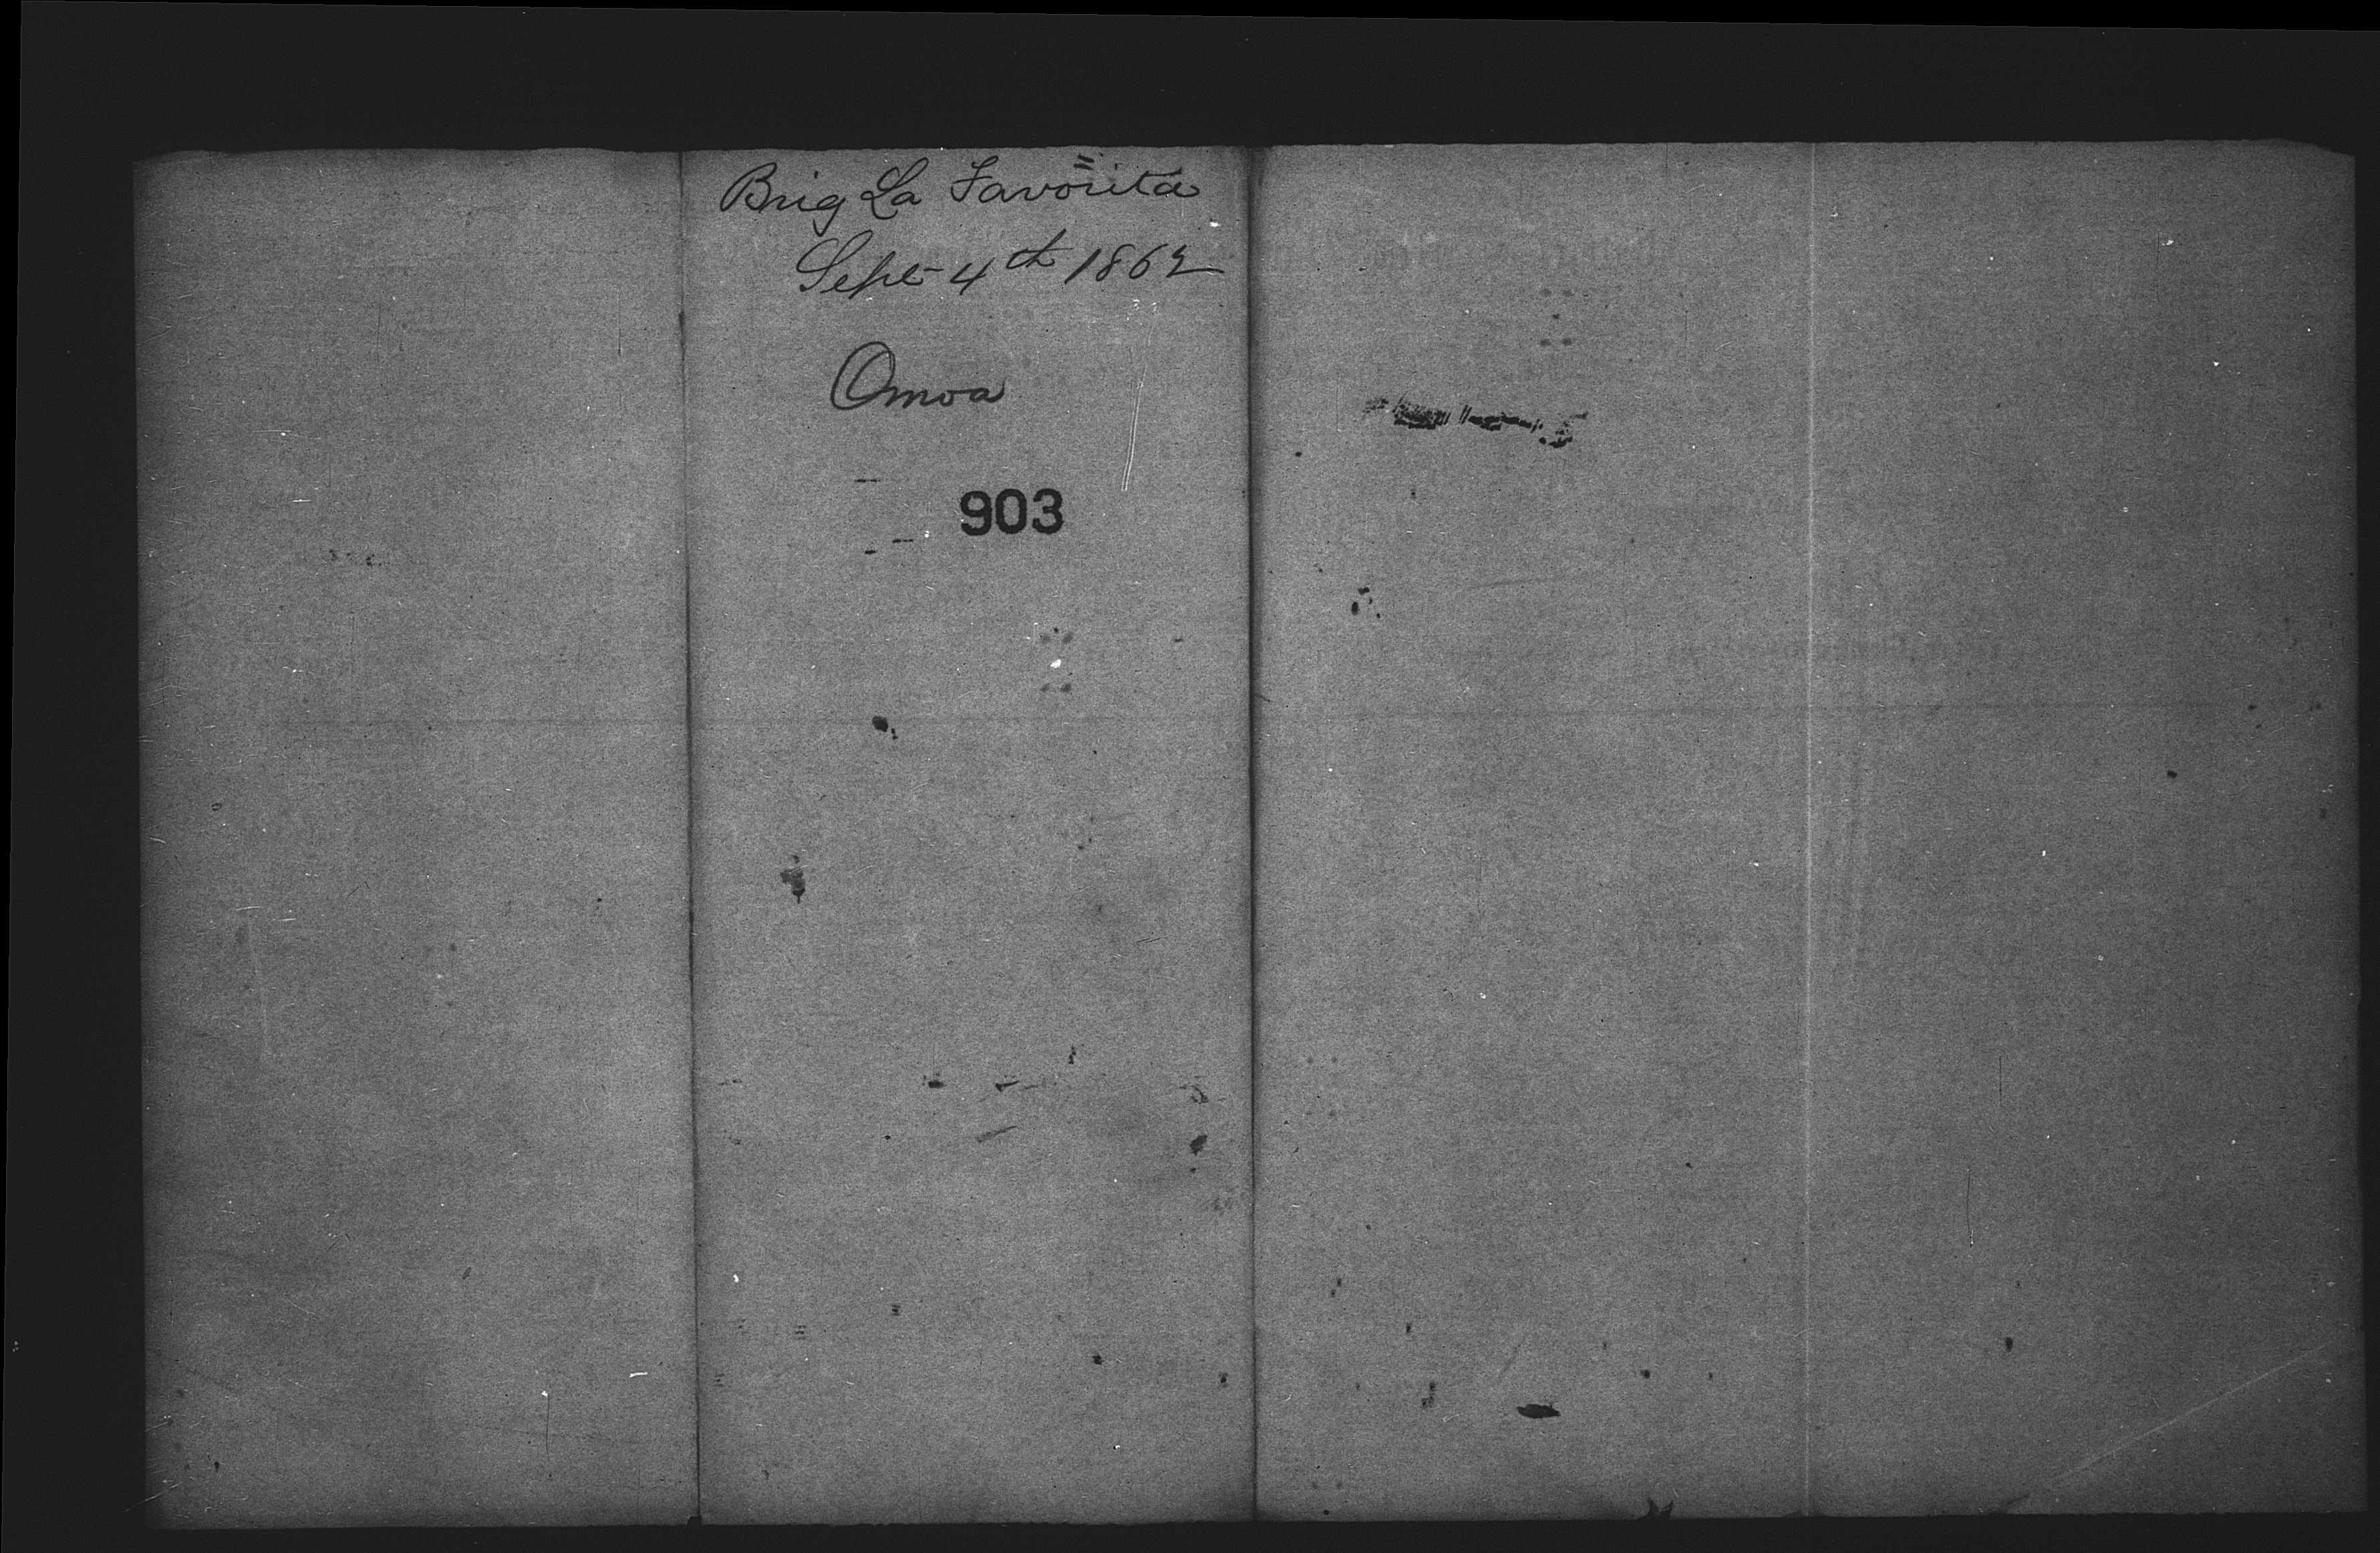 Brig La Favorita
Sept 4th 1862
Omoa
903